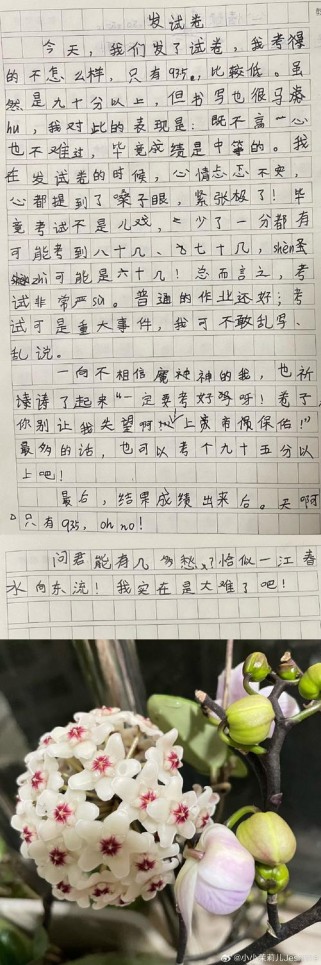 发试卷
今天，我们发了试卷，我考得
的不怎么样，只有935。，比较低。虽
然是九十分以上，但书写也很马
hu，我对此的表现是：既不高心
也不难过，毕竟成绩是中等的。我
在发试卷的时候，心情忐忑不安，
心都提到了嗓子眼，紧张极了！毕
竟考试不是儿戏，少了一分都有
可能考到八十几、七十几，shèn至
zhi可能是六十几！总而言之，考
试非常严sù。普通的作业还好；考
试可是重大事件，我可不敢乱写、
乱说。
一向不相信魔神神的我，也祈
祷了起来“一定要考好呀！卷子，
你别让我失望啊 上帝市保佑！”
最多的话，也可以考个九十五分以
上吧！
最后，结果成绩出来后。天啊
只有935，oh no！
问君能有几多愁？恰似一江春
水向东流！我实在是太难了吧！
@小小茉莉儿Jes